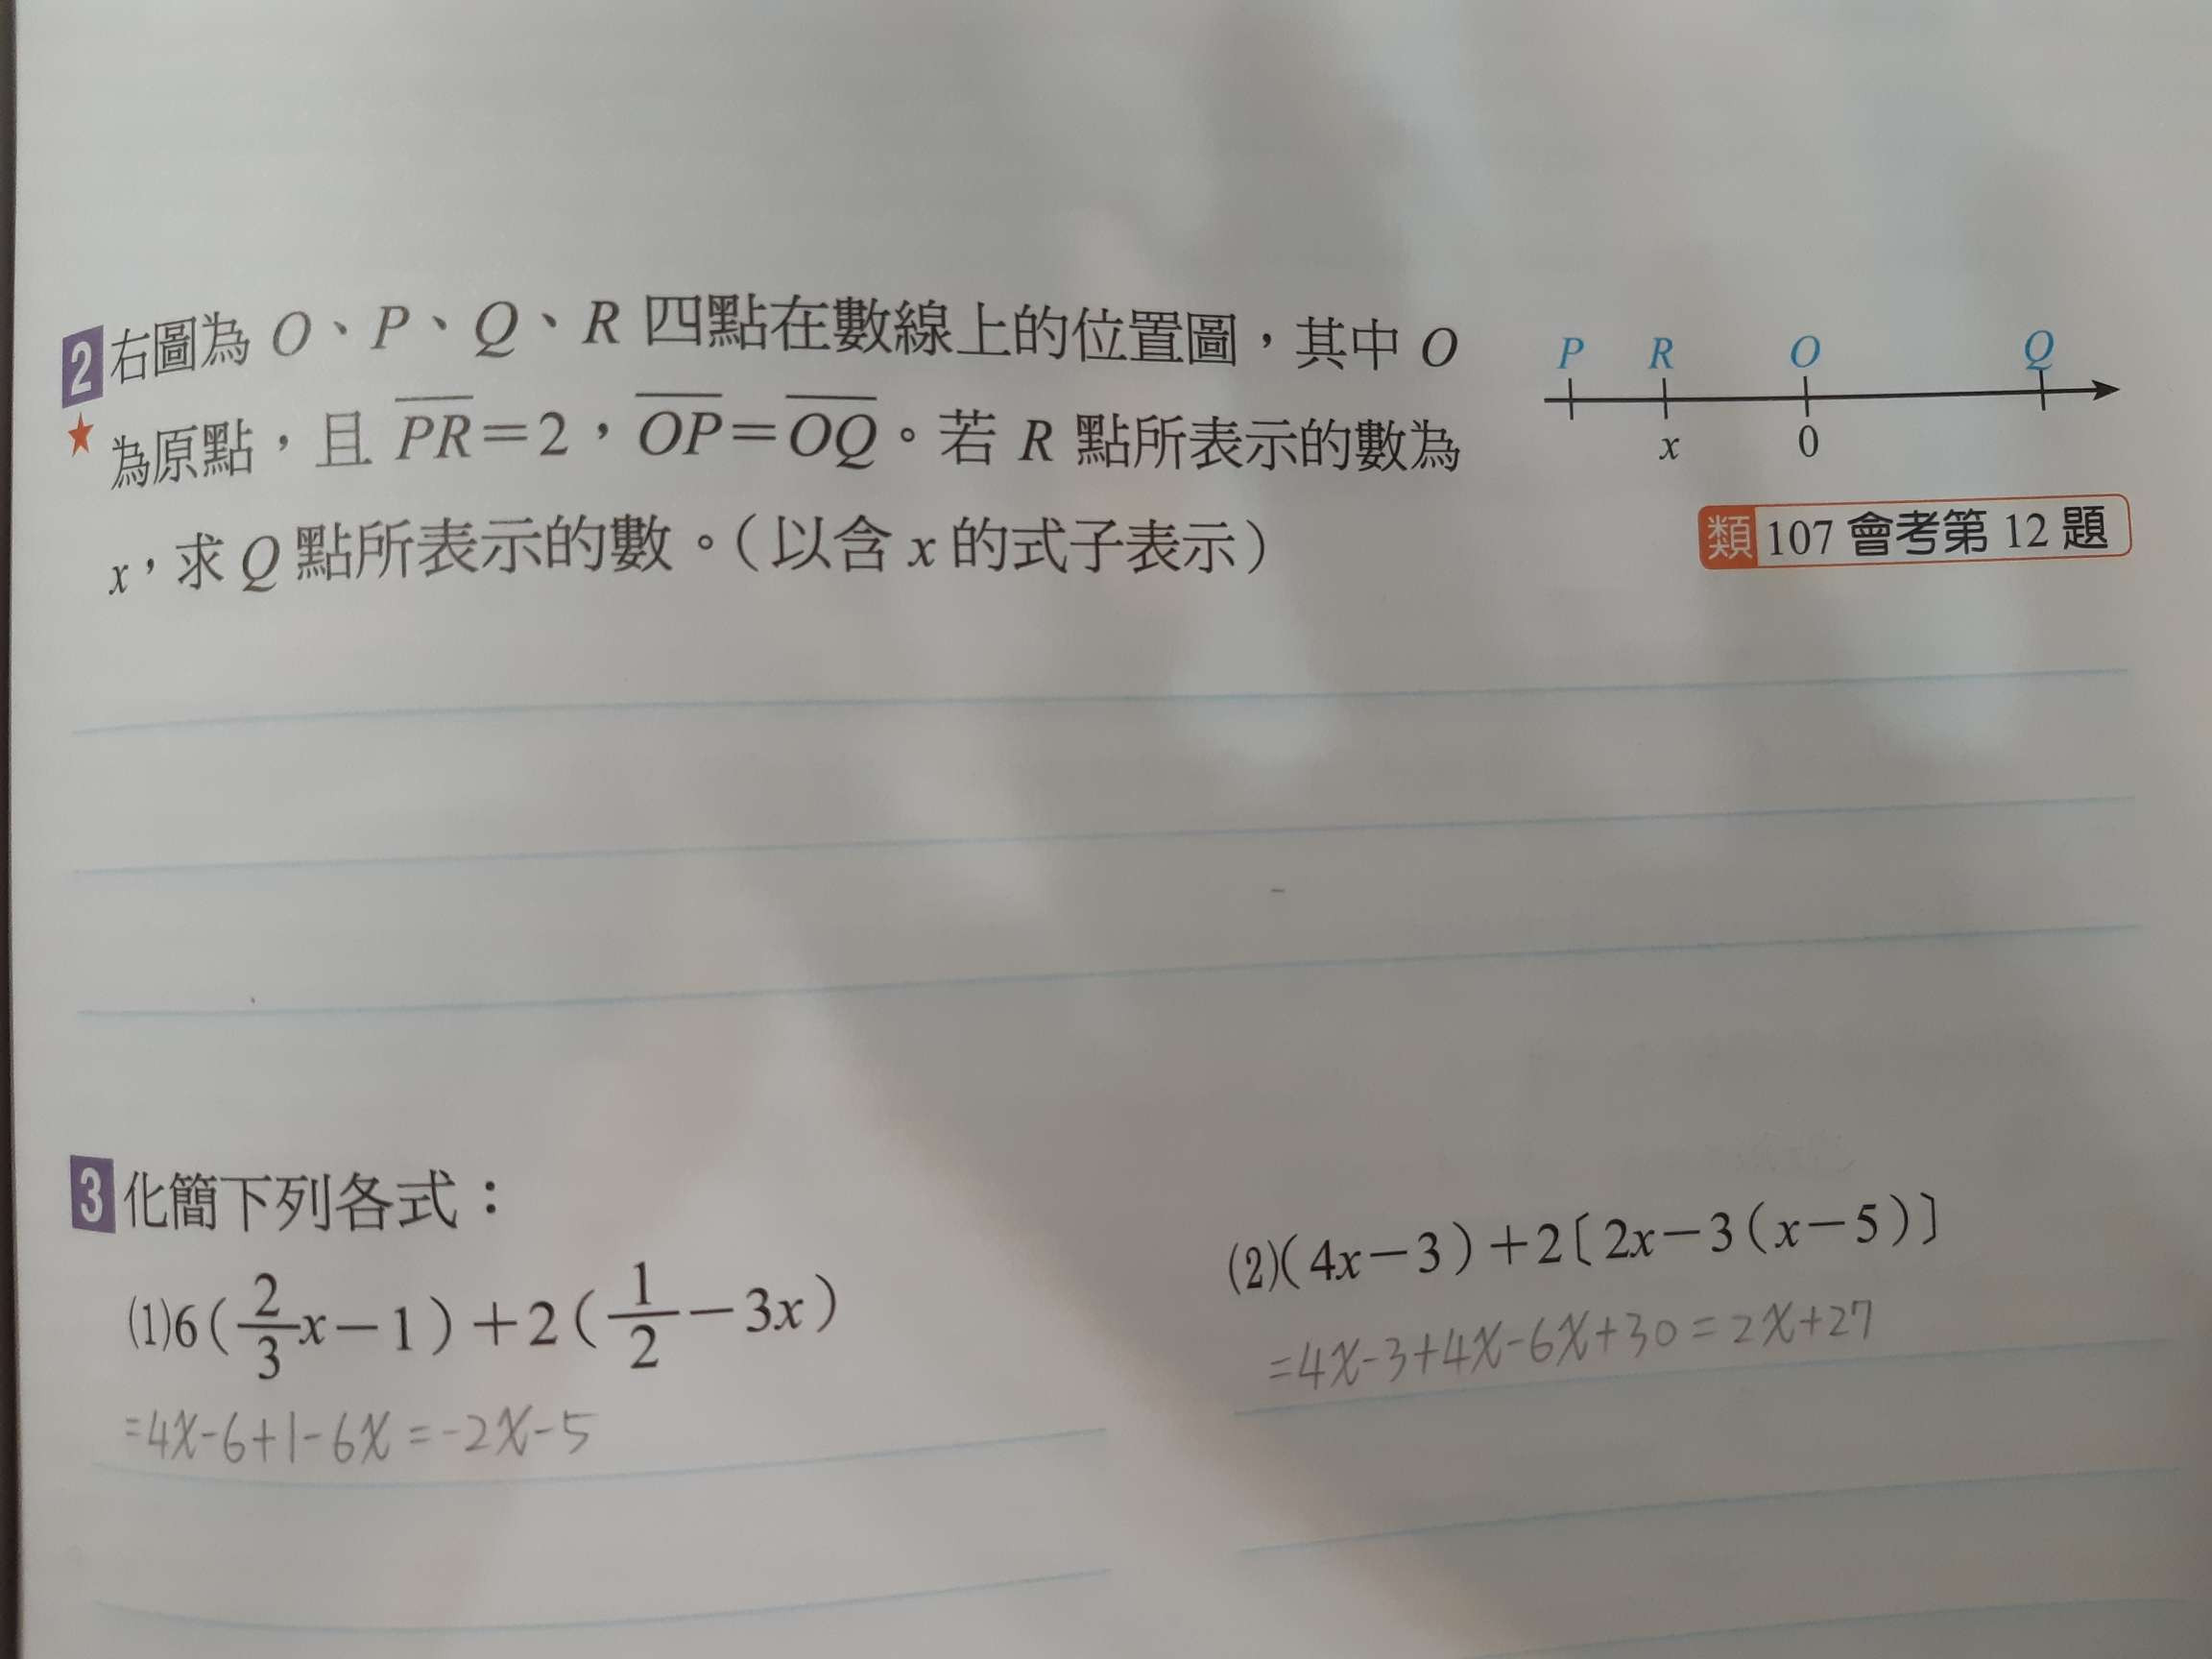 2 右圖為 O、P、Q、R 四點在數線上的位置圖，其中 O
★ 為原點，且 \overline{PR}=2，\overline{OP}=\overline{OQ}。若 R 點所表示的數為
x，求 Q 點所表示的數。（以含 x 的式子表示）
P R O Q
x 0
類 107 會考第 12 題
3 化簡下列各式：
(1)6(\frac{2}{3}x－1)＋2(\frac{1}{2}－3x)
=4x-6+1-6x=-2x-5
(2)(4x－3)＋2〔2x－3(x－5)〕
=4x-3+4x-6x+30=2x+27